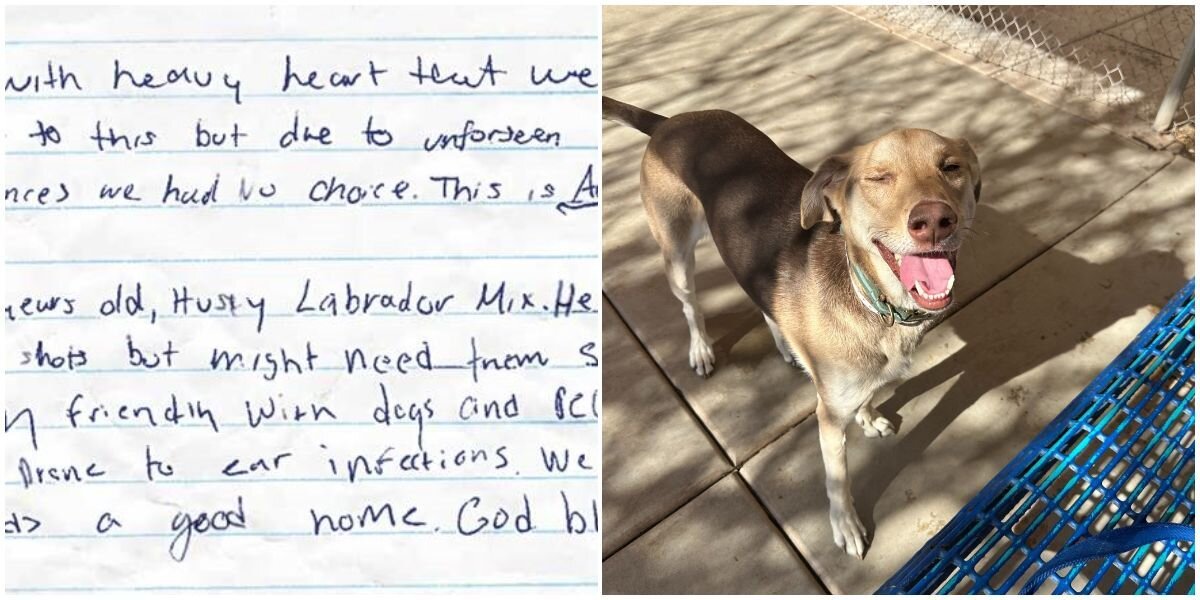 with heavy heart that we
to this but due to unforseen
nces we had no choice. This is A
years old, Husky Labrador Mix. He
shots but might need them s
friendly with dogs and
Prone to ear infections. We
ds a good home. God bl